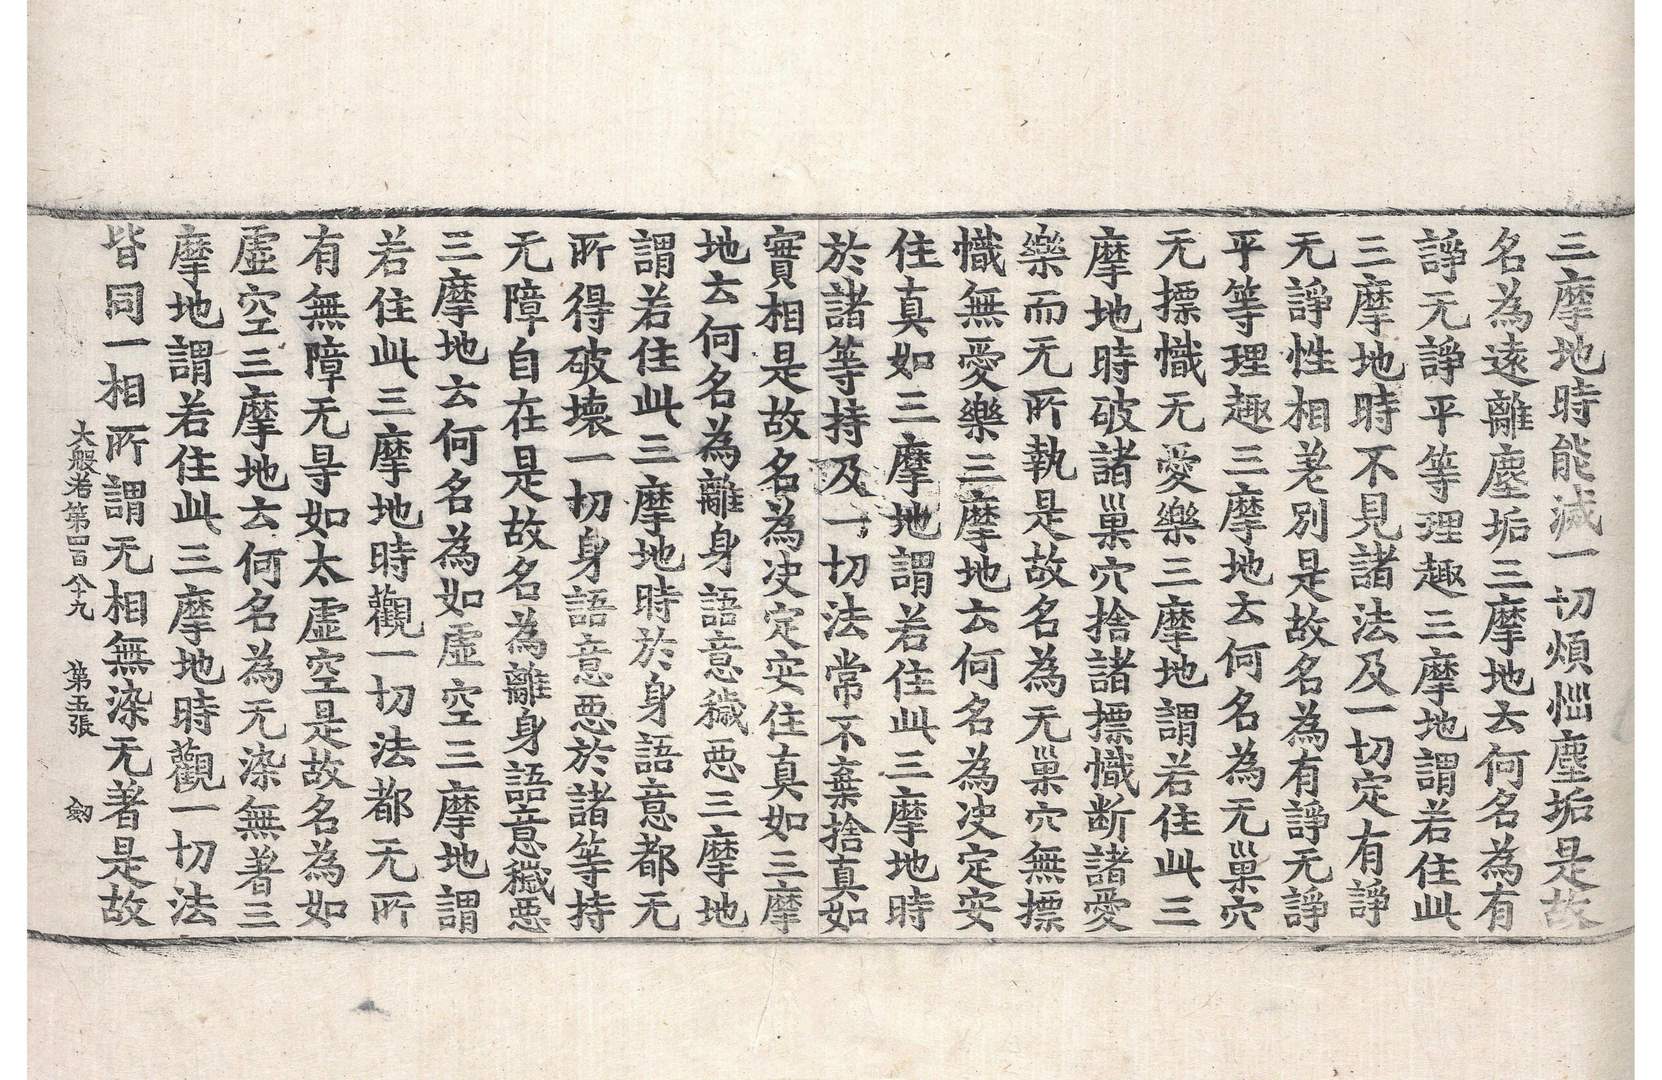 三摩地時能滅一切煩惱塵垢是故
名為遠離塵垢三摩地云何名為有
諍无諍平等理趣三摩地謂若住此
三摩地時不見諸法及一切定有諍
无諍性相差別是故名為有諍无諍
平等理趣三摩地云何名為无巢穴
无摽幟无愛樂三摩地謂若住此三
摩地時破諸巢穴捨諸摽幟断諸愛
樂而无所執是故名為无巢穴無摽
幟無愛樂三摩地云何名為决定安
住真如三摩地謂若住此三摩地時
於諸等持及一切法常不棄捨真如
實相是故名為决定安住真如三摩
地云何名為離身語意穢惡三摩地
謂若住此三摩地時於身語意都无
所得破壞一切身語意惡於諸等持
无障自在是故名為離身語意穢惡
三摩地云何名為如虛空三摩地謂
若住此三摩地時觀一切法都无所
有無障无㝵如太虛空是故名為如
虛空三摩地云何名為无染無著三
摩地謂若住此三摩地時觀一切法
皆同一相所謂无相無染无著是故
大般若第四百八十九 第五張 劒